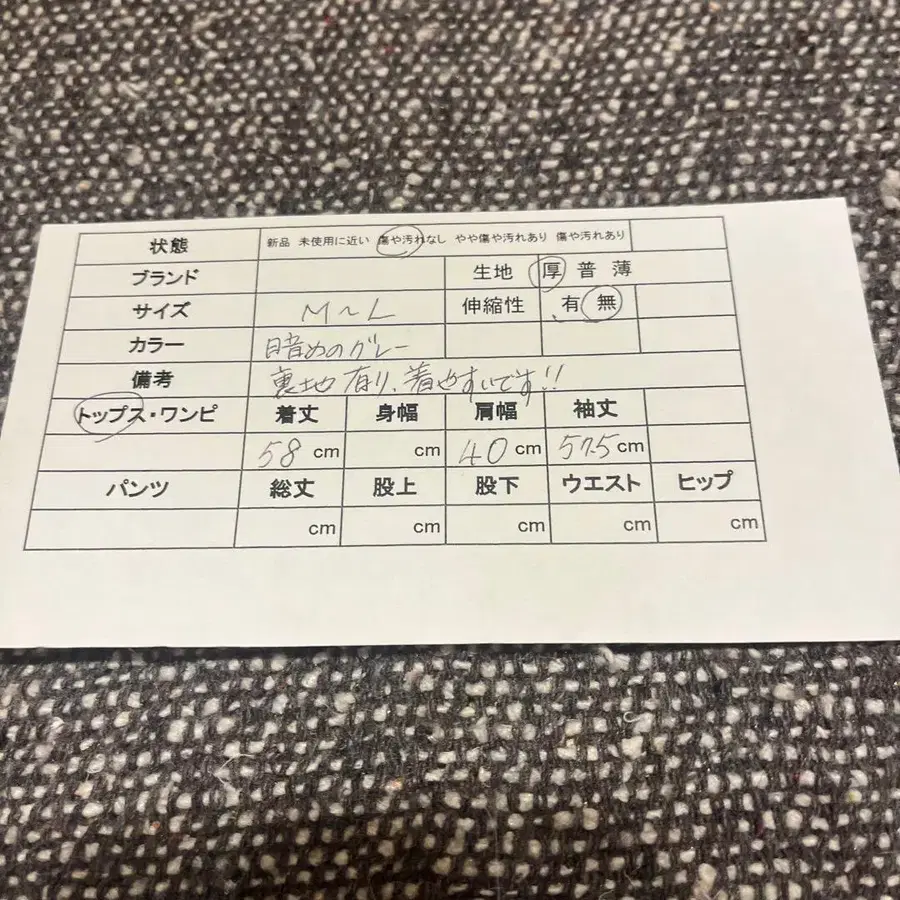 状態 新品 未使用に近い 傷や汚れなし やや傷や汚れあり 傷や汚れあり
ブランド 生地 厚 普 薄
サイズ M~L 伸縮性 有 無
カラー 暗めのグレー
備考 裏地有り、着やすいです!!
トップス・ワンピ 着丈 身幅 肩幅 袖丈
58 cm cm 40 cm 57.5 cm
パンツ 総丈 股上 股下 ウエスト ヒップ
cm cm cm cm cm